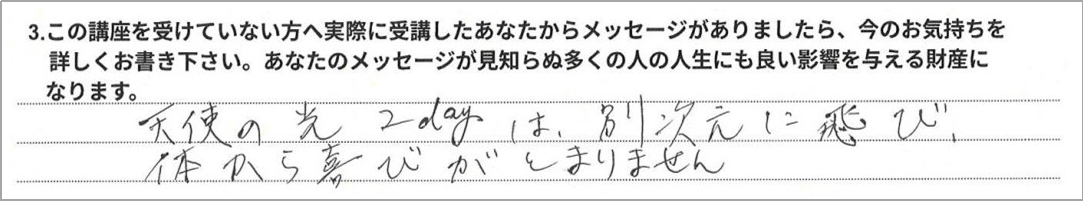 3.この講座を受けていない方へ実際に受講したあなたからメッセージがありましたら、今のお気持ちを
詳しくお書き下さい。あなたのメッセージが見知らぬ多くの人の人生にも良い影響を与える財産に
なります。
天使の光 2dayは、別次元に飛び、
体から喜びがとまりません